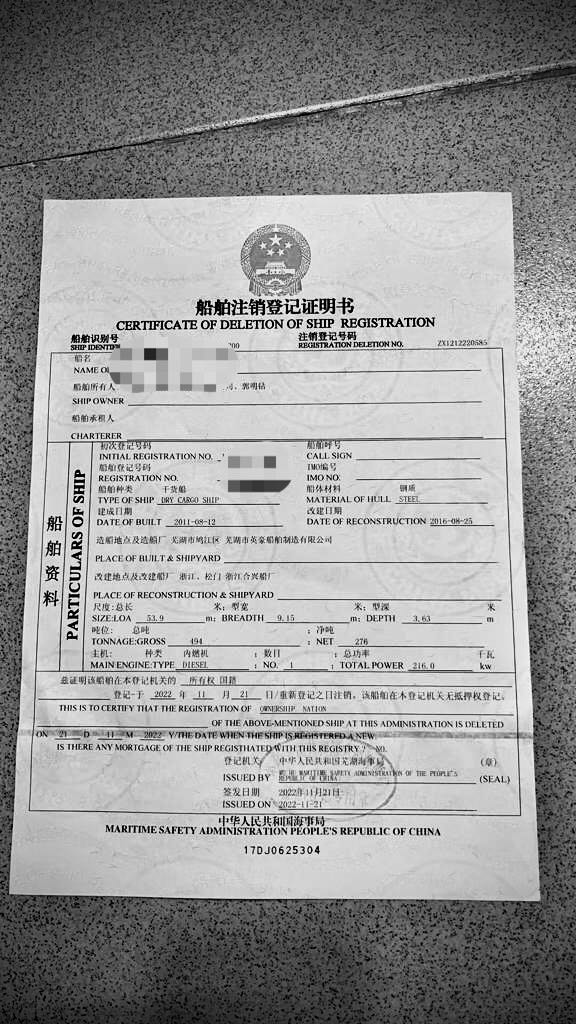 船舶注销登记证明书
CERTIFICATE OF DELETION OF SHIP REGISTRATION
船舶识别号 注销登记号码
SHIP IDENTIF 700 REGISTRATION DELETION NO. ZX1212220585
船名
NAME OF
船舶所有人 司、郭明钻
SHIP OWNER
船舶承租人
CHARTERER
船舶资料
PARTICULARS OF SHIP
初次登记号码 船舶呼号
INITIAL REGISTRATION NO. CALL SIGN
船舶登记号码 IMO编号
REGISTRATION NO. IMO NO.
船舶种类 干货船 船体材料 钢质
TYPE OF SHIP DRY CARGO SHIP MATERIAL OF HULL STEEL
建成日期 改建日期
DATE OF BUILT 2011-08-12 DATE OF RECONSTRUCTION 2016-08-25
造船地点及造船厂 芜湖市鸠江区 芜湖市英豪船舶制造有限公司
PLACE OF BUILT & SHIPYARD
改建地点及改建船厂 浙江、松门 浙江合兴船厂
PLACE OF RECONSTRUCTION & SHIPYARD
尺度:总长 米; 型宽 米; 型深 米
SIZE:LOA 53.9 m; BREADTH 9.15 m; DEPTH 3.63 m
吨位: 总吨 ; 净吨
TONNAGE:GROSS 494 ; NET 276
主机: 种类 内燃机 ; 数目 ; 总功率 千瓦
MAIN ENGINE:TYPE DIESEL ; NO. 1 ; TOTAL POWER 216.0 kw
兹证明该船舶在本登记机关的 所有权 国籍
登记于 2022 年 11 月 21 日/重新登记之日注销。该船舶在本登记机关无抵押权登记。
THIS IS TO CERTIFY THAT THE REGISTRATION OF OWNERSHIP NATION
OF THE ABOVE-MENTIONED SHIP AT THIS ADMINISTRATION IS DELETED
ON 21 D 11 M 2022 Y/THE DATE WHEN THE SHIP IS REGISTERED A NEW.
IS THERE ANY MORTGAGE OF THE SHIP REGISTHATED WITH THIS REGISTRY? NO.
登记机关 中华人民共和国芜湖海事局 (章)
ISSUED BY WU HU MARITIME SAFETY ADMINISTRATION OF THE PEOPLE'S REPUBLIC OF CHINA (SEAL)
签发日期 2022年11月21日
ISSUED ON 2022-11-21
中华人民共和国海事局
MARITIME SAFETY ADMINISTRATION PEOPLE'S REPUBLIC OF CHINA
17DJ0625304